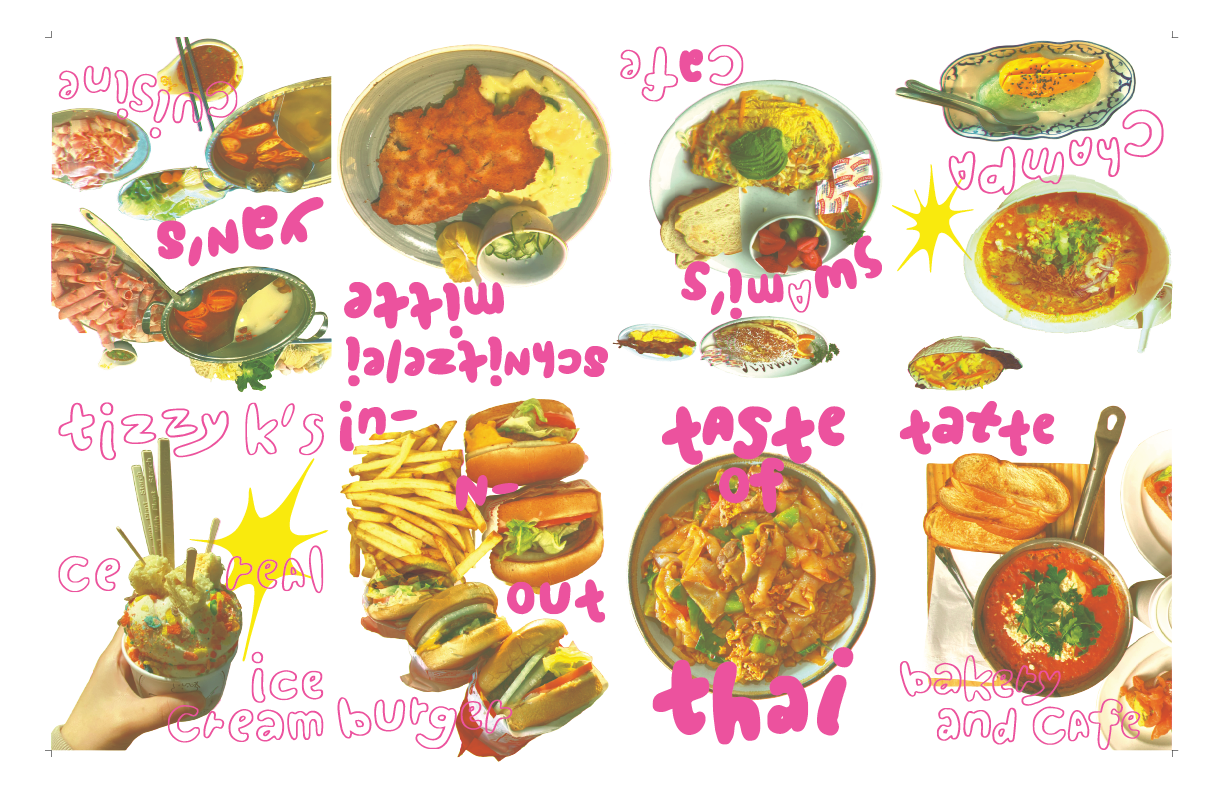 yan's
cuisine
schnitzelei
mitte
swami's
cafe
champa
tizzy k's
ce real
ice
cream
in-
n-
out
burger
taste
of
thai
tatte
bakery
and cafe